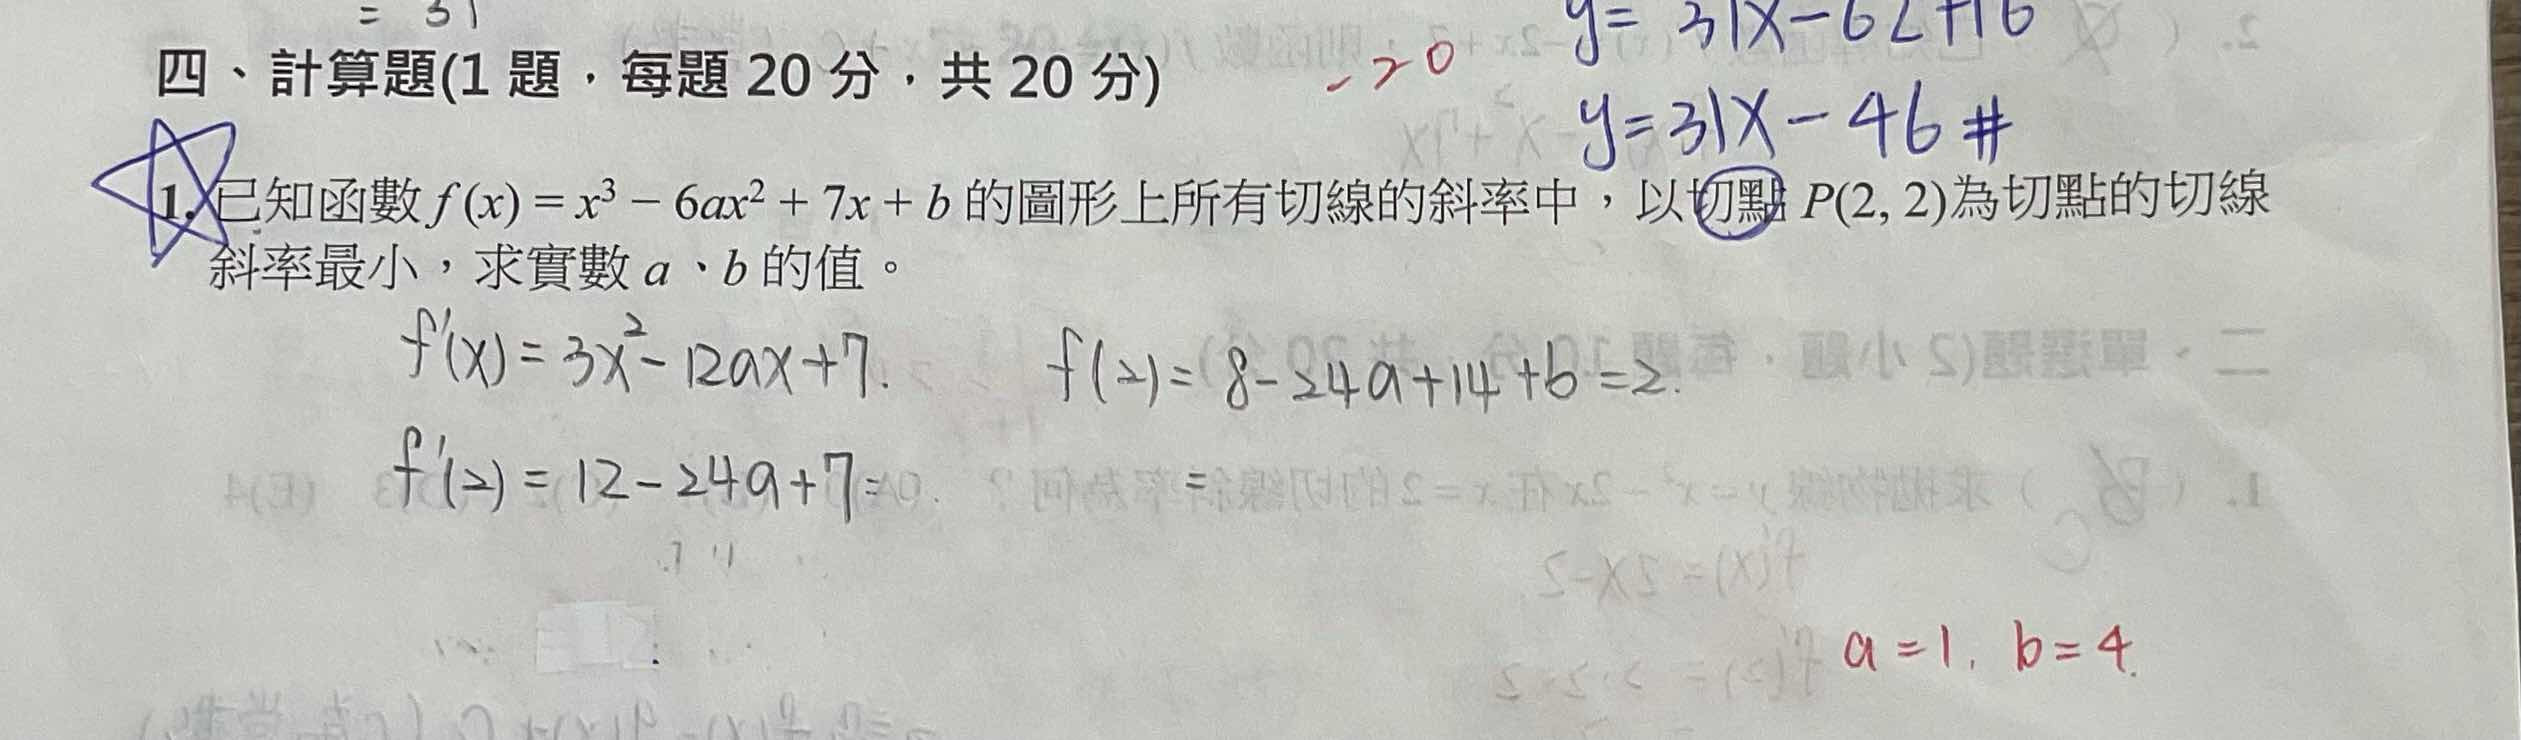 = 31
y = 31x - 62 + 16
四、計算題(1 題，每題 20 分，共 20 分)
-20
y = 31x - 46 #
1. 已知函數 f (x) = x³ − 6ax² + 7x + b 的圖形上所有切線的斜率中，以切點 P(2, 2)為切點的切線
斜率最小，求實數 a、b 的值。
f'(x) = 3x² - 12ax + 7. f(2) = 8 - 24a + 14 + b = 2.
f'(2) = 12 - 24a + 7 = =
a = 1, b = 4.